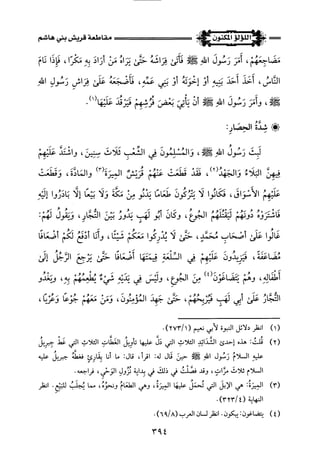 اللؤلؤ المكنون
مقاطعة قريش بني هاشم
مَضَاجِعَهُمْ، أَمَرَ رَسُولَ اللهِ ﷺ فَأَتَى فِرَاشَهُ حَتَّى يَرَاهُ مَنْ أَرَادَ بِهِ مَكْرًا، فَإِذَا نَامَ
النَّاسُ، أَخَذَ أَحَدَ بَنِيهِ أَوْ إِخْوَتَهُ أَوْ بَنِي عَمِّهِ، فَأَضْجَعَهُ عَلَى فِرَاشِ رَسُولِ اللهِ
ﷺ، وَأَمَرَ رَسُولَ اللهِ ﷺ أَنْ يَأْتِيَ بَعْضَ فُرُشِهِمْ فَيَرْقُدَ عَلَيْهَا(١).
شِدَّةُ الحِصَارِ:
لَبِثَ رَسُولُ اللهِ ﷺ، وَالمُسْلِمُونَ فِي الشِّعْبِ ثَلَاثَ سِنِينَ، وَاشْتَدَّ عَلَيْهِمْ
فِيهِنَّ البَلَاءُ وَالجَهْدُ(٢)، فَقَدْ قَطَعَتْ عَنْهُمْ قُرَيْشٌ المِيرَةَ(٣) وَالمَادَّةَ، وَقَطَعَتْ
عَلَيْهِمُ الأَسْوَاقَ، فَكَانُوا لَا يَتْرُكُونَ طَعَامًا يَدْنُو مِنْ مَكَّةَ وَلَا بَيْعًا إِلَّا بَادَرُوا إِلَيْهِ
فَاشْتَرَوْهُ دُونَهُمْ لِيَقْتُلَهُمُ الجُوعُ، وَكَانَ أَبُو لَهَبٍ يَدُورُ بَيْنَ التُّجَّارِ، وَيَقُولُ لَهُمْ:
غَالُوا عَلَى أَصْحَابِ مُحَمَّدٍ، حَتَّى لَا يُدْرِكُوا مَعَكُمْ شَيْئًا، وَأَنَا أَدْفَعُ لَكُمْ أَضْعَافًا
مُضَاعَفَةً، فَيَزِيدُونَ عَلَيْهِمْ فِي السِّلْعَةِ قِيمَتَهَا أَضْعَافًا حَتَّى يَرْجِعَ الرَّجُلُ إِلَى
أَطْفَالِهِ، وَهُمْ يَتَضَاغَوْنَ(٤) مِنَ الجُوعِ، وَلَيْسَ فِي يَدَيْهِ شَيْءٌ يُطْعِمُهُمْ بِهِ، وَيَغْدُو
التُّجَّارُ عَلَى أَبِي لَهَبٍ فَيُرْبِحُهُمْ، حَتَّى جَهِدَ المُؤْمِنُونَ، وَمَنْ مَعَهُمْ جُوعًا وَعُرْيًا،
(١) انظر دلائل النبوة لأبي نعيم (٢٧٣/١)
(٢) قُلتُ: هذه إحدى الشَّدَائِدِ الثلاثِ التي دَلَّ عليها تأوِيلُ الغَطَّاتِ الثلاثِ التي غَطَّ جبريلُ
عليهِ السلامُ رَسُولَ اللهِ ﷺ حينَ قالَ له: اقرأ، قال: ما أنا بقَارِئٍ فغطَّهُ جبريلُ عليه
السلام ثلاثَ مرَّاتٍ، وقد فصَّلْتُ في ذلك في بِدايةِ نُزُولِ الوَحْيِ، فراجعه.
(٣) المِيرَةُ: هي الإبلُ التي تُحمَلُ عليهَا المِيرَةُ، وهي الطعَامُ ونحوُهُ، مما يُجلَبُ للبَيْعِ. انظر
النهاية (٣٢٣/٤)
(٤) يتضاغون: يبكون. انظر لسان العرب (٦٩/٨)
٣٩٤